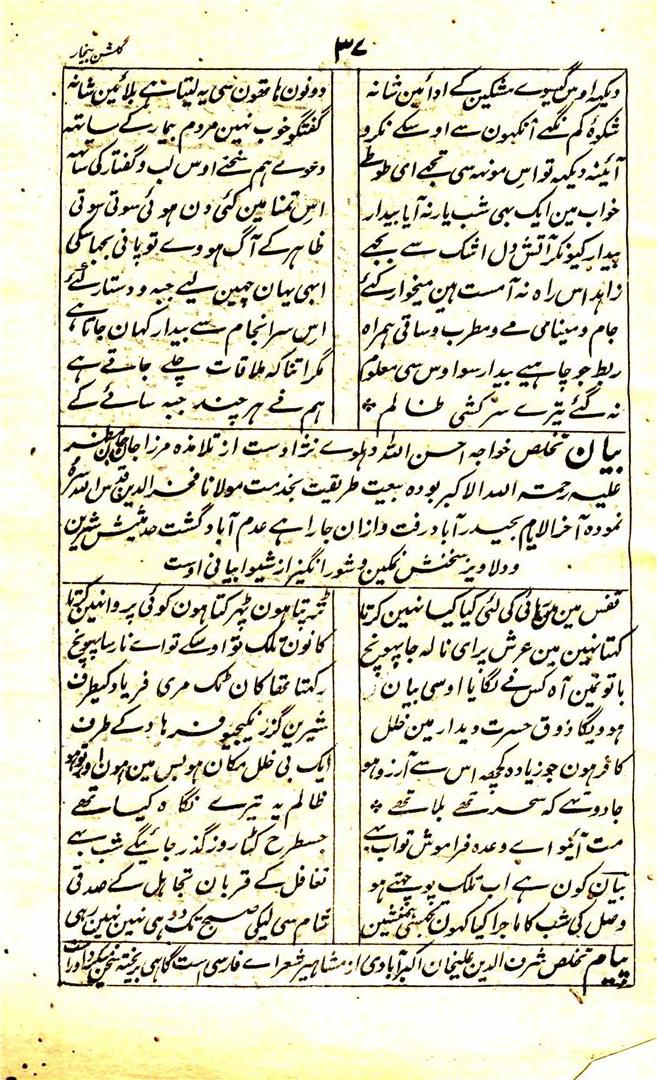 ۳۷
گلشن بیخار
دیکھہ اوس گیسوے مشکین کے ادائین شانہ
دونون ہاتھون سی یہ لیتا ہے بلائین شانہ
شکوۂ کم نگہے آنکہون سے اوسکے نکرو
گفتگو خوب نہین مردم بیمار کے ساتہہ
آئینہ دیکہہ تو اس مونہہ سی تجہے ای طوطے
دعوے ہم سخنے اوس لب و گفتار کی ساتہہ
خواب مین ایک بہی شب یار نہ آیا بیدار
اس تمنا مین کئی دن ہوئی سوتی سوتی
بیدار کیونکر آتش دل اشک سے بجہے
ظاہر کے آگ ہووے تو پانی بجہا سکی
زاہد اس راہ نہ آ مست ہین میخوار کئے
ابہی یہان چہین لیے جبہ و دستار کئے
جام و مینا می مے و مطرب و ساقی ہمراہ
اس سر انجام سے بیدار کہان جاتا ہے
ربط جو چاہیے بیدار سو اوس سی معلوم
مگر اتنا کہ ملاقات چلے جاتے ہے
نہ گئے تیرے سرکشی ظالم *
ہم نے ہر چند جبہ سائے کے
بیان تخلص خواجہ احسن اللہ دہلوے نژاد است از تلامذہ مرزا جانجانان مظہر
علیہ رحمۃ اللہ الاکبر بودہ بیعت طریقت بخدمت مولانا فخر الدین قدس اللہ سرہ
نمودہ آخر الایام بحیدر آباد رفت و ازان جا راہے عدم آباد گشت حدیثش شیرین
و دلاویز سخنش نمکین و شور انگیز از شیوا بیانی اوست
قفس مین مین رہائی کی لئی کیا کیا نہین کرتا
تڑپتا ہون پہڑکتا ہون کوئی پروا نہین کرتا
کہتا نہین مین عرش پر ای نالہ جا پہونچ
کانون تلک تو اوسکے تو اے نارسا پہونچ
باتونمین آہ کس نے لگایا اوسی بیان
رکہتا تھا کان ٹک مری فریاد کیطرف
ہوویگا ذوق حسرت دیدار مین خلل
شیرین گزر نکیجیو فرہاد کے طرف
کافر ہون جو زیادہ کچھہ اس سے آرزو ہو
ایک بی خلل مکان ہو بس مین ہون اور تو ہو
جادو تہے کہ سحر تھے بلا تھے *
ظالم یہ تیرے نگاہ کیا تھے
مت آئیو اے وعدہ فراموش تو اب بہے
جسطرح کٹا روز گذر جائیگے شب بہے
بیان کون ہے اب تلک پوچہتے ہو
تغافل کے قربان تجاہل کے صدقی
وصل کی شب کا ماجرا کیا کہون تجھسی ہمنشین
شام سی لیکی صبح تک وہ ہی نہین نہین رہی
پیام تخلص شرف الدین علیخان اکبر آبادی از مشاہیر شعراے فارسی است گاہی بریختہ سخن میکرد